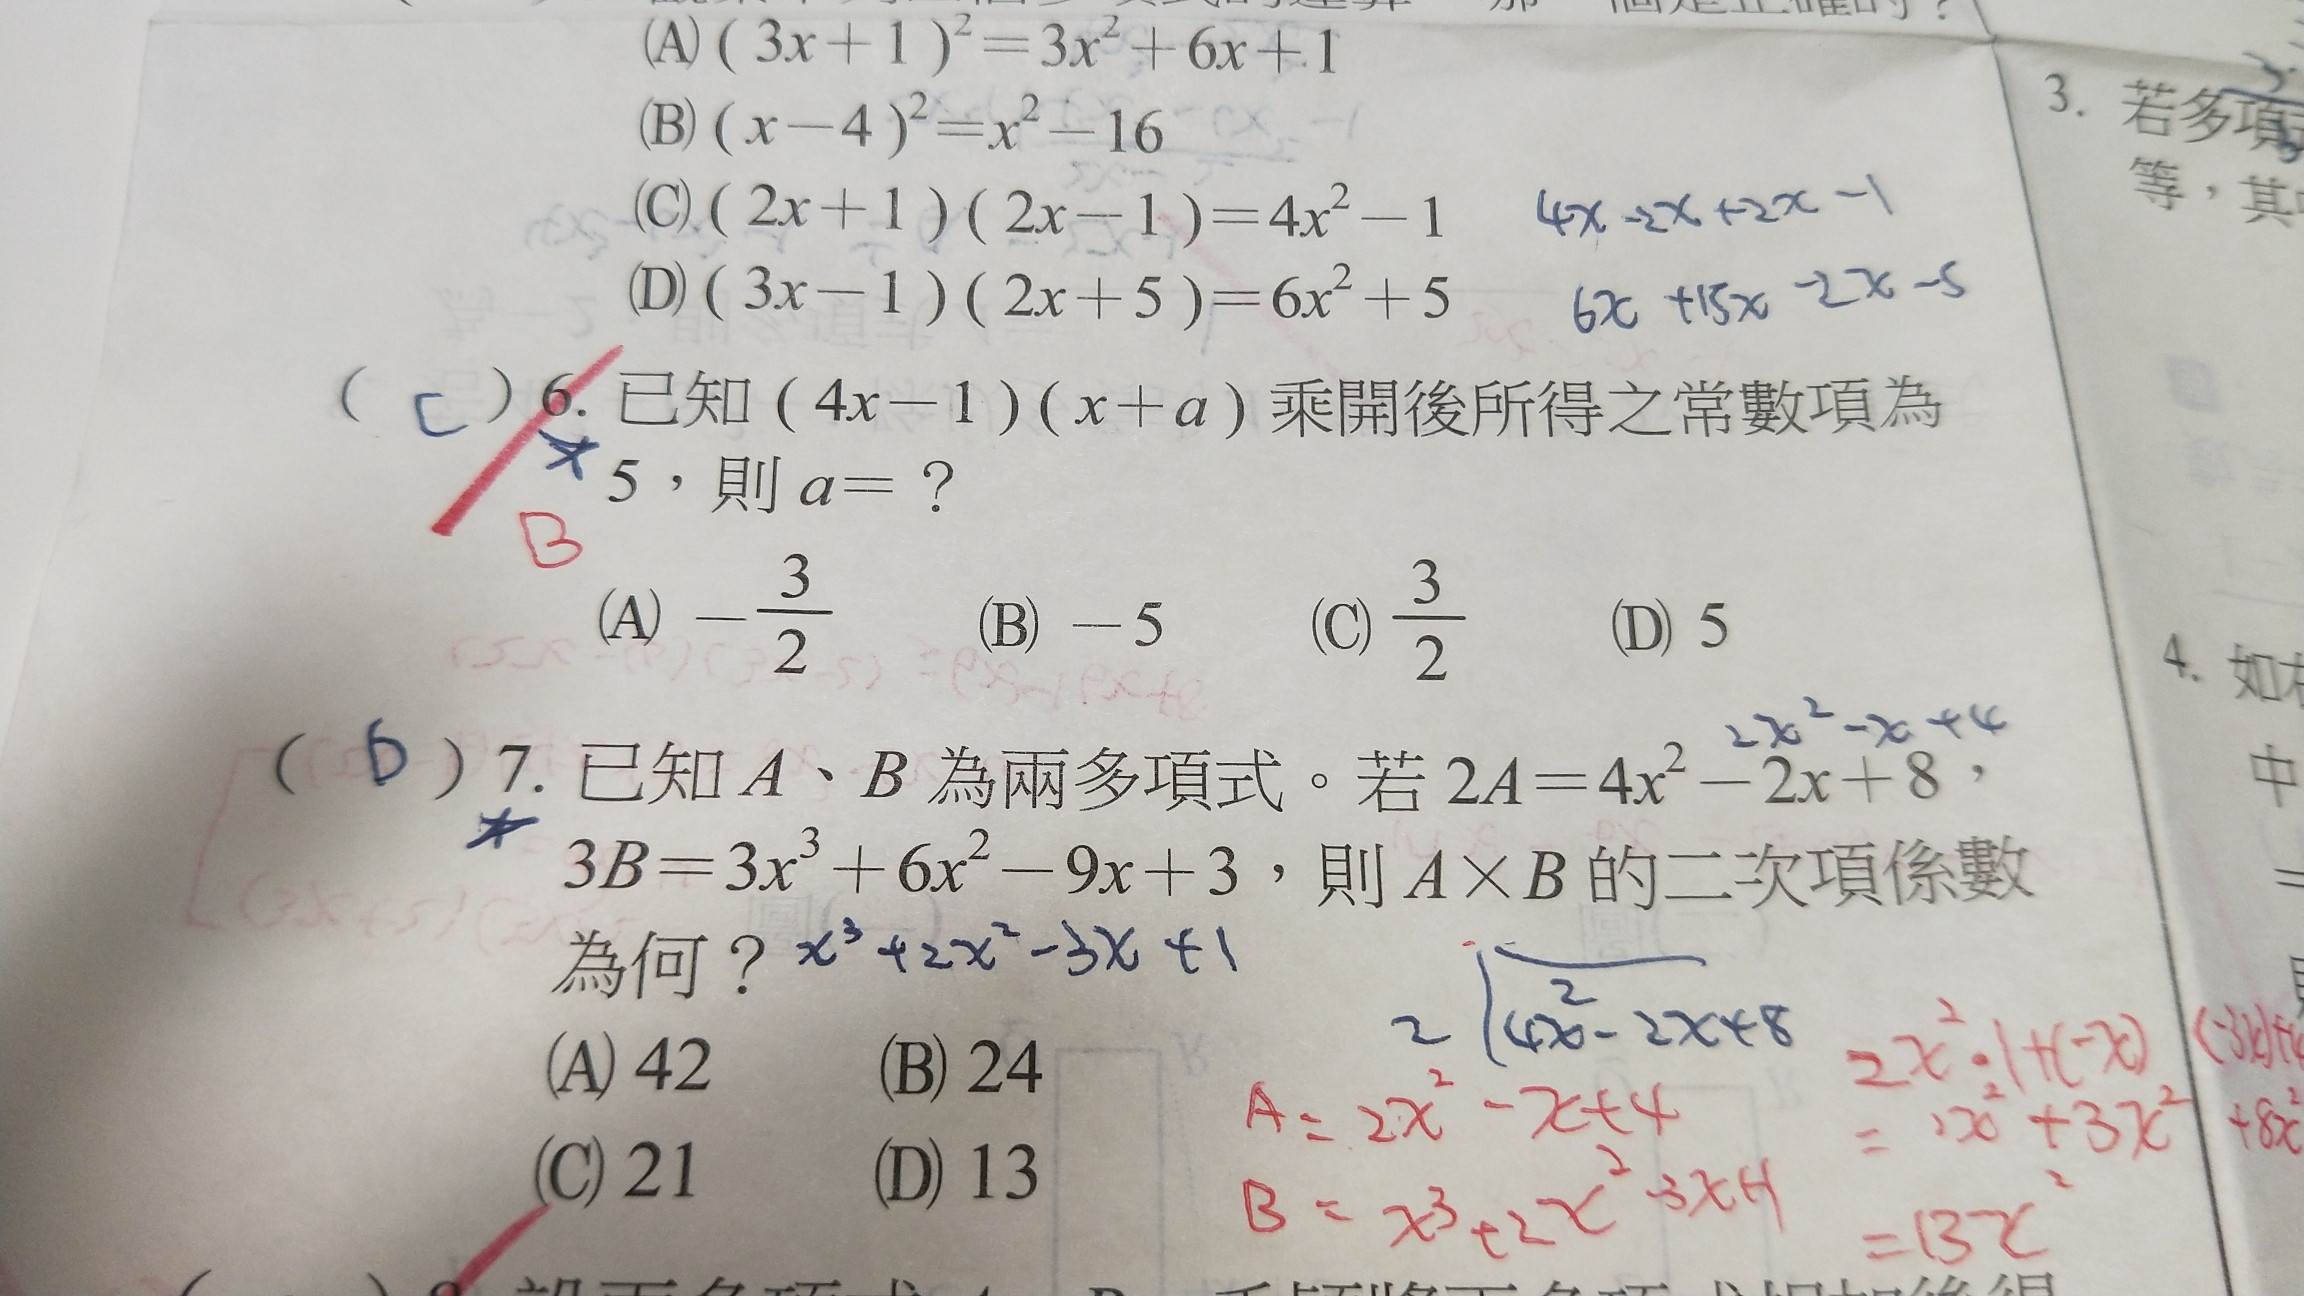 (A) ( 3x+1 )²=3x²+6x+1
(B) ( x-4 )²=x²-16
(C) ( 2x+1 ) ( 2x-1 )=4x²-1 4x-2x+2x-1
(D) ( 3x-1 ) ( 2x+5 )=6x²+5 6x+15x-2x-5
( C ) 6. 已知 ( 4x-1 ) ( x+a ) 乘開後所得之常數項為
5,則 a= ?
B
(A) -3/2 (B) -5 (C) 3/2 (D) 5
2x²-x+4
( D ) 7. 已知 A、B 為兩多項式。若 2A=4x²-2x+8,
3B=3x³+6x²-9x+3,則 A×B 的二次項係數
為何? x³+2x²-3x+1
(A) 42 (B) 24
2 4x²-2x+8
(C) 21 (D) 13
A=2x²-x+4
B=x³+2x²-3x+1
2x²·1+(-x)(-3x)+4
=2x²+3x²+8x²
=13x²
3. 若多項
等,其
4. 如
中